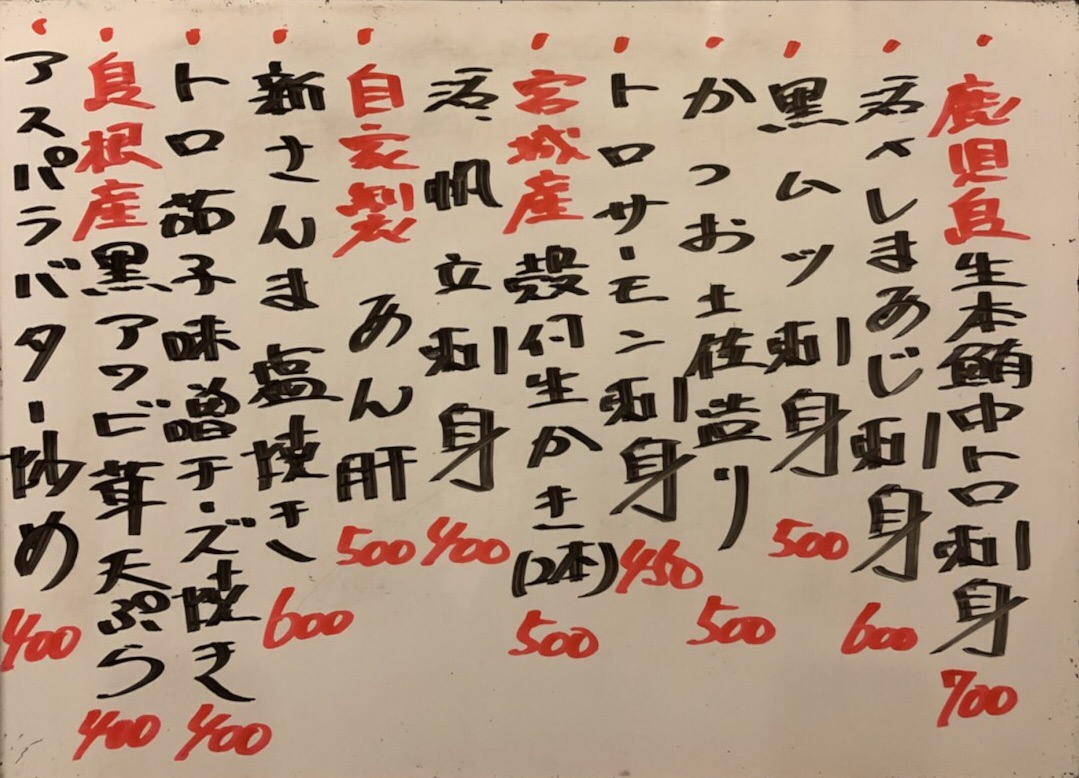 ・鹿児島生本鮪中トロ刺身 700
・活〆しまあじ刺身 600
・黒ムツ刺身 500
・かつお土佐造り 500
・トロサーモン刺身 450
・宮城産殻付生かき(2本) 500
活帆立刺身 400
・自家製あん肝 500
・新さんま塩焼き 600
・トロ茄子味噌チーズ焼き 400
・島根産黒アワビ茸天ぷら 400
・アスパラバター炒め 400